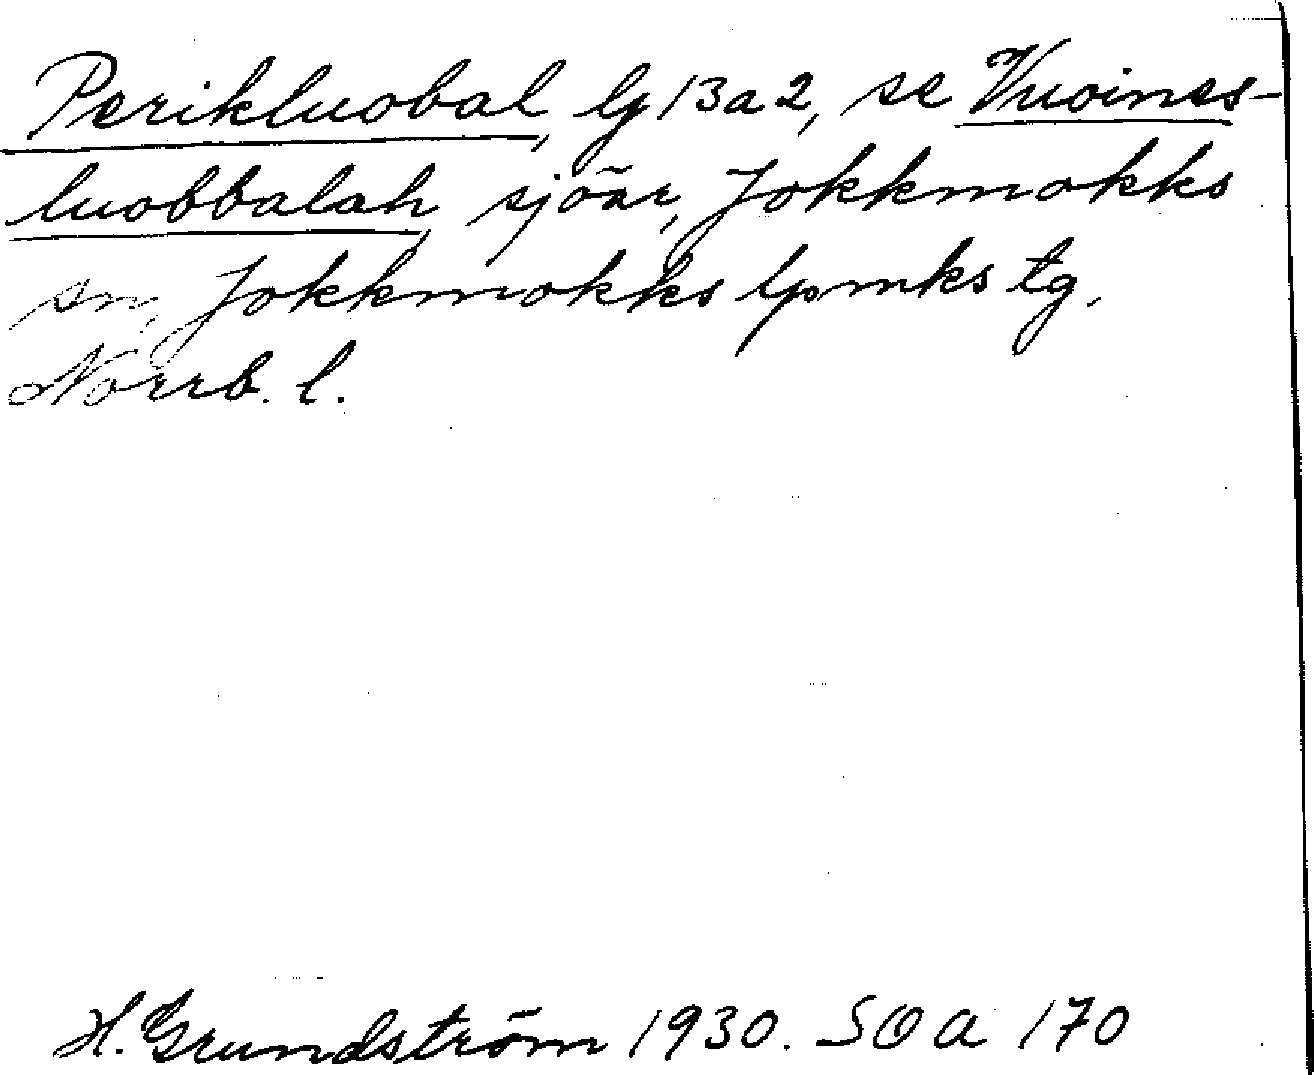 Perikluobal, lg 13a2, se Vuoines-
luobbalah, sjöar, Jokkmokks
sn, Jokkmokks lpmks tg,
Norrb. l.
H. Grundström 1930. SOA 170